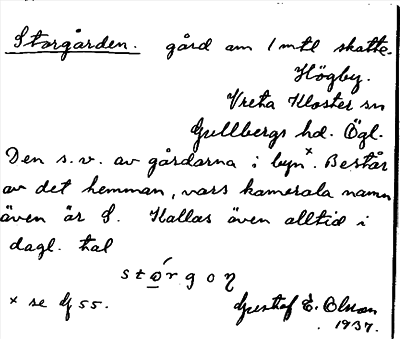 Storgården. gård om 1 mtl skatte.
Högby.
Vreta Kloster sn
Gullbergs hd. Ögl.
Den s.v. av gårdarna i byn×. Består
av det hemman, vars kamerala namn
även är S. Kallas även alltid i
dagl. tal
størgoŋ
× se G 55. Gustaf E. Olsson
1937.